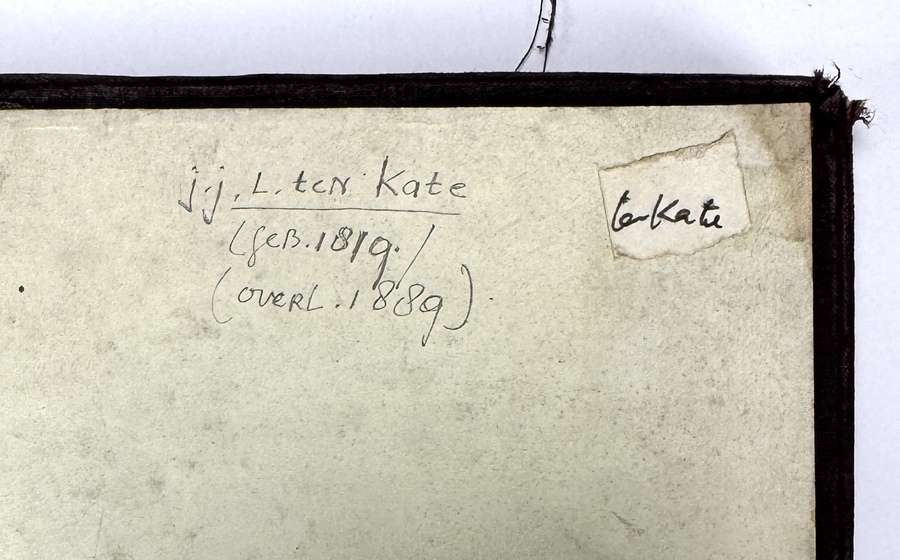 j.j.L. ten Kate
(geb. 1819.)
(overl. 1889)
ten Kate